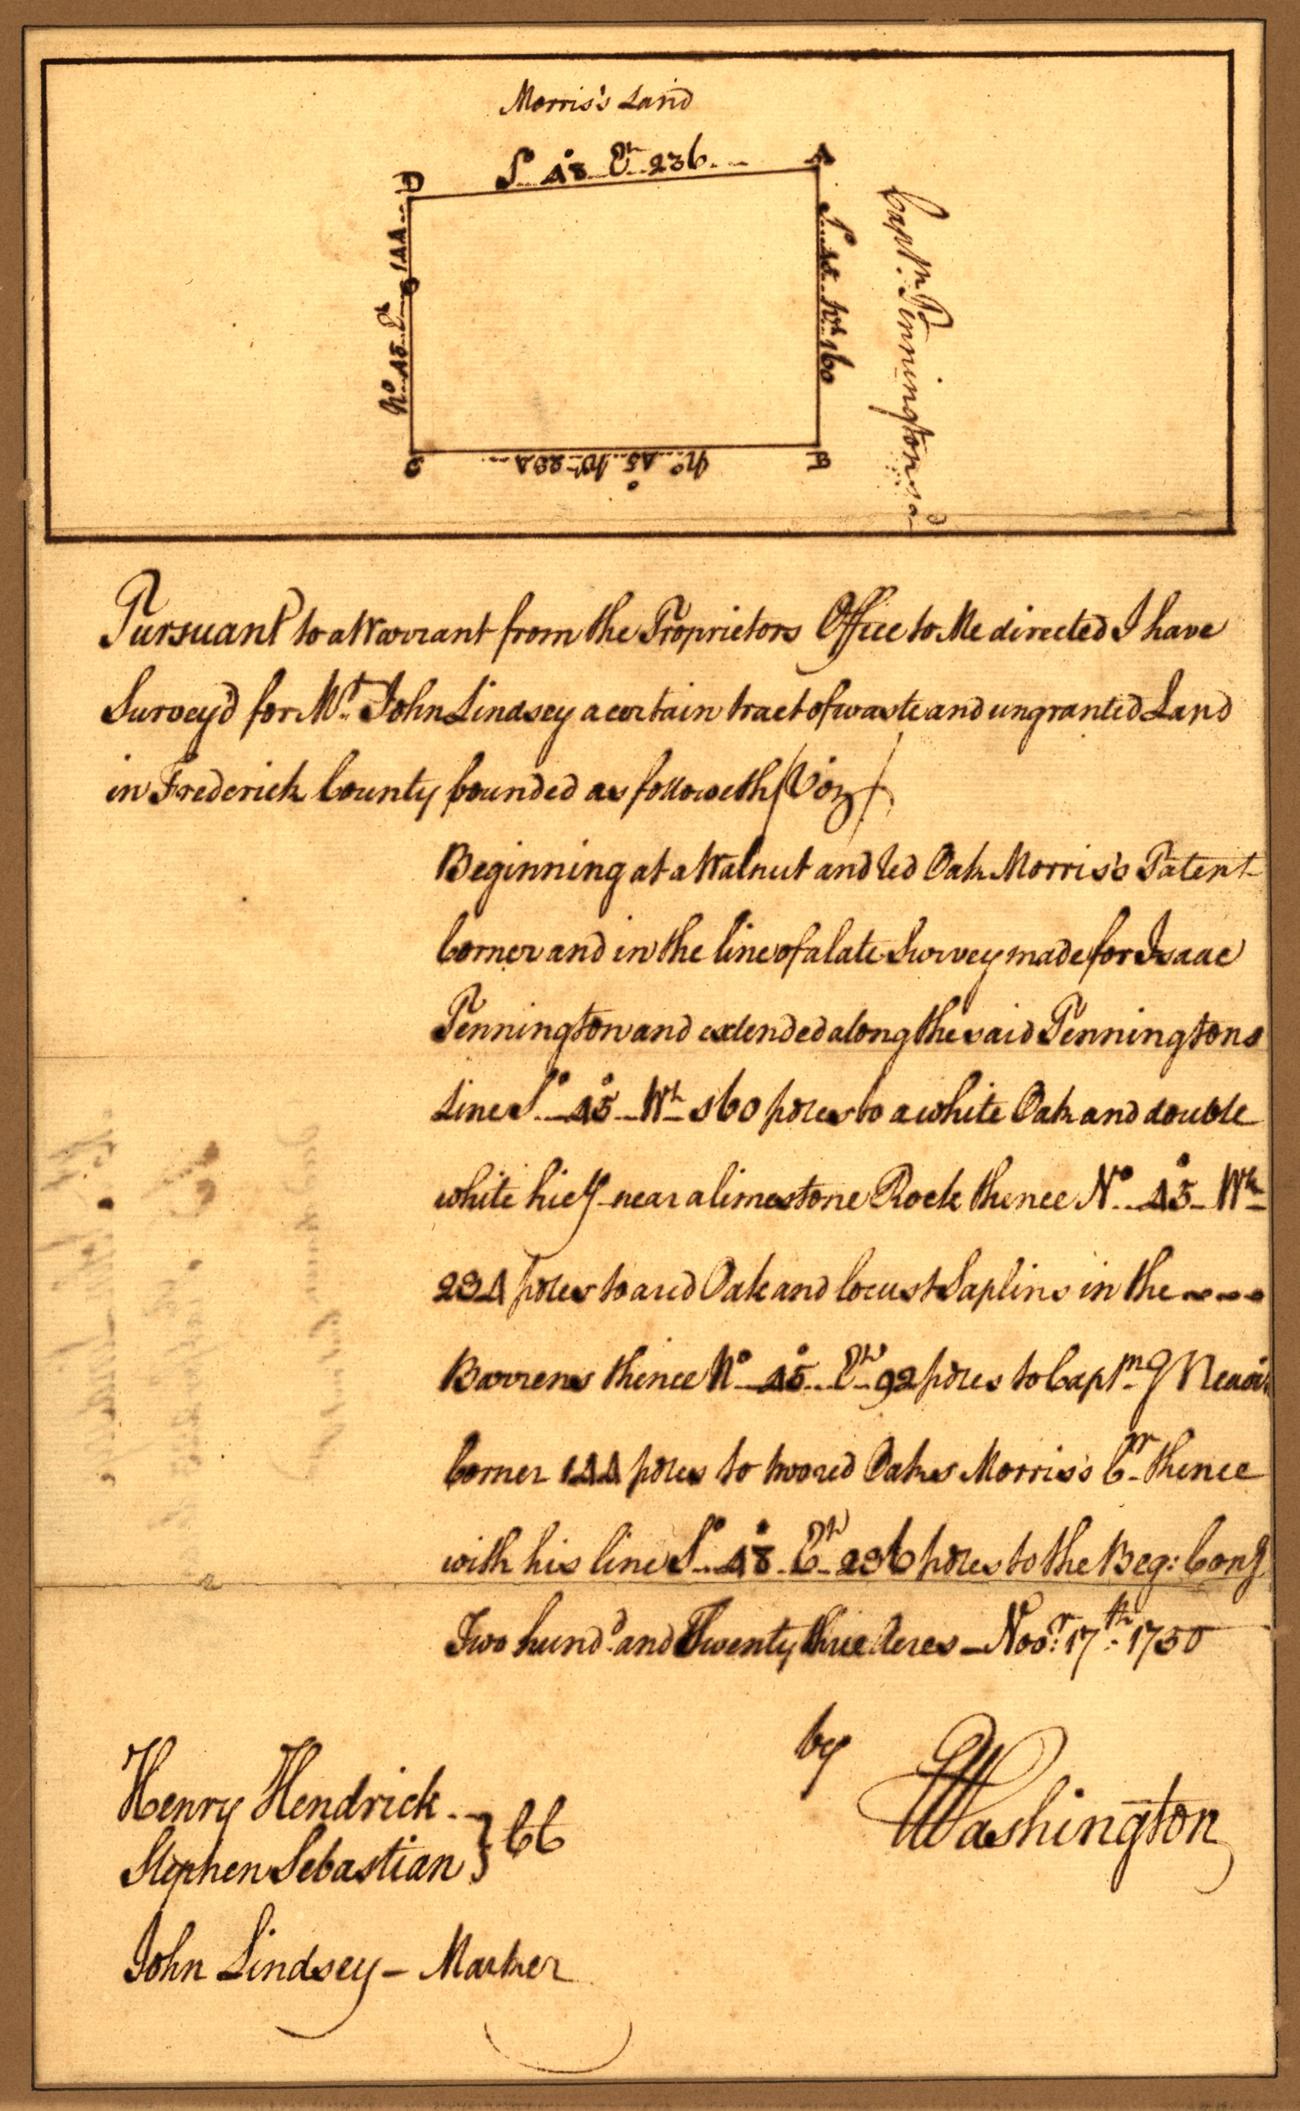 Morris's Land
D
So. 48° Et. 236
A
So. 45 Wt. 160
Captn. Penningtons Ld
No. 45 Et. 144
C
No. 45° Wt. 234
B
Pursuant to a Warrant from the Proprietors Office to Me directed I have
Survey'd for Mr. John Lindsey a certain tract of waste and ungranted Land
in Frederick County bounded as followeth (Viz)
Beginning at a Walnut and Red Oak Morris's Patent
Corner and in the line of a late Survey made for Isaac
Pennington and extended along the said Penningtons
Line So. 45° Wt. 160 poles to a white Oak and double
white near a limestone Rock thence No. 45° Wt.
234 poles to a red Oak and locust Saplins in the
Barrens thence No. 45° Et. 92 poles to Captn. G Neavi
Corner 144 poles to two red Oakes Morris's Cr. thence
with his line So. 48° Et. 236 poles to the Beg: Cong
Two hund'd. and Twenty three Acres — Novr: 17th. 1750
by
GWashington
Henry Hendrick
Stephen Sebastian } CC
John Lindsey — Marker